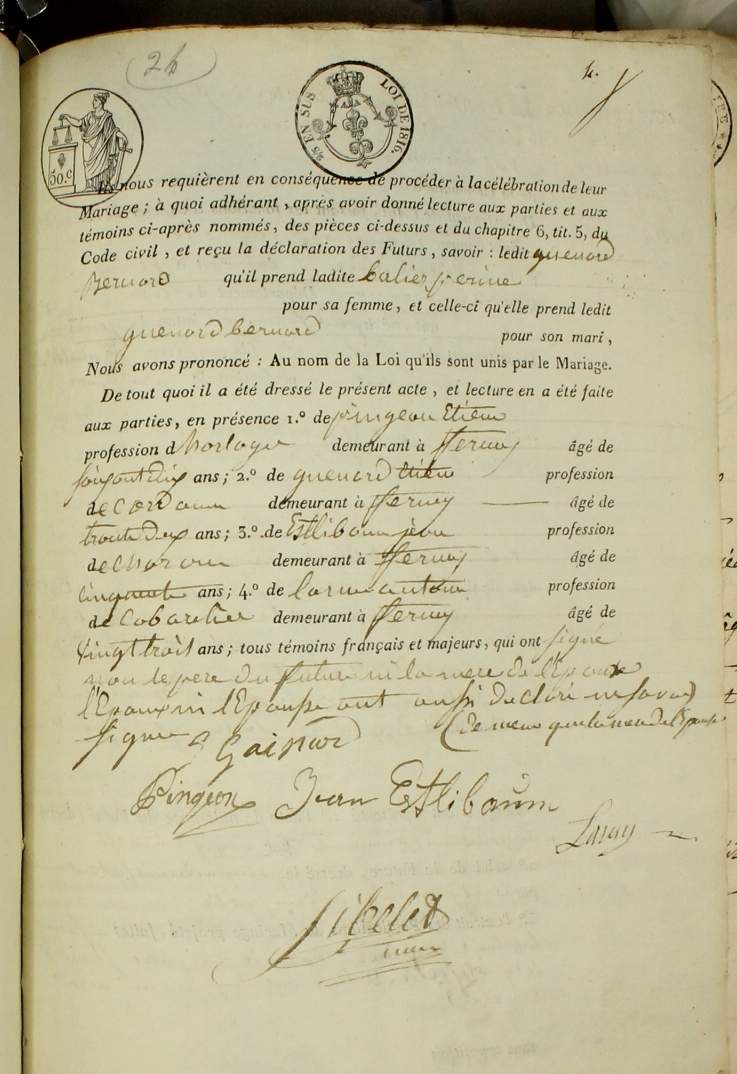 2h
50.c
4/5 EN SUS LOI DE 1816.
Ils nous requièrent en conséquence de procéder à la célébration de leur
Mariage ; à quoi adhérant , après avoir donné lecture aux parties et aux
témoins ci-après nommés, des pièces ci-dessus et du chapitre 6, tit. 5, du
Code civil , et reçu la déclaration des Futurs , savoir : ledit guenard
Bernard qu'il prend ladite perine
pour sa femme , et celle-ci qu'elle prend ledit
guenard bernard pour son mari ,
Nous avons prononcé : Au nom de la Loi qu'ils sont unis par le Mariage.
De tout quoi il a été dressé le présent acte , et lecture en a été faite
aux parties, en présence 1.° de pingeon Etiene
profession d'horloger demeurant à fferney âgé de
soixantedix ans ; 2.° de guenard profession
de demeurant à fferney âgé de
trente deux ans ; 3.° de Estlibaum jean profession
de charon demeurant à fferney âgé de
cinquante ans ; 4.° de antoine profession
de Cabaretier demeurant à fferney âgé de
vingt trois ans ; tous témoins français et majeurs, qui ont signé
non le pere du futur ni la mere de l'Epoux
l'Epoux ni l'Epouse ont aussi declaré ne savoir
signer (de meme que la mere de l'Epouse
Pingeon Jean Estlibaum